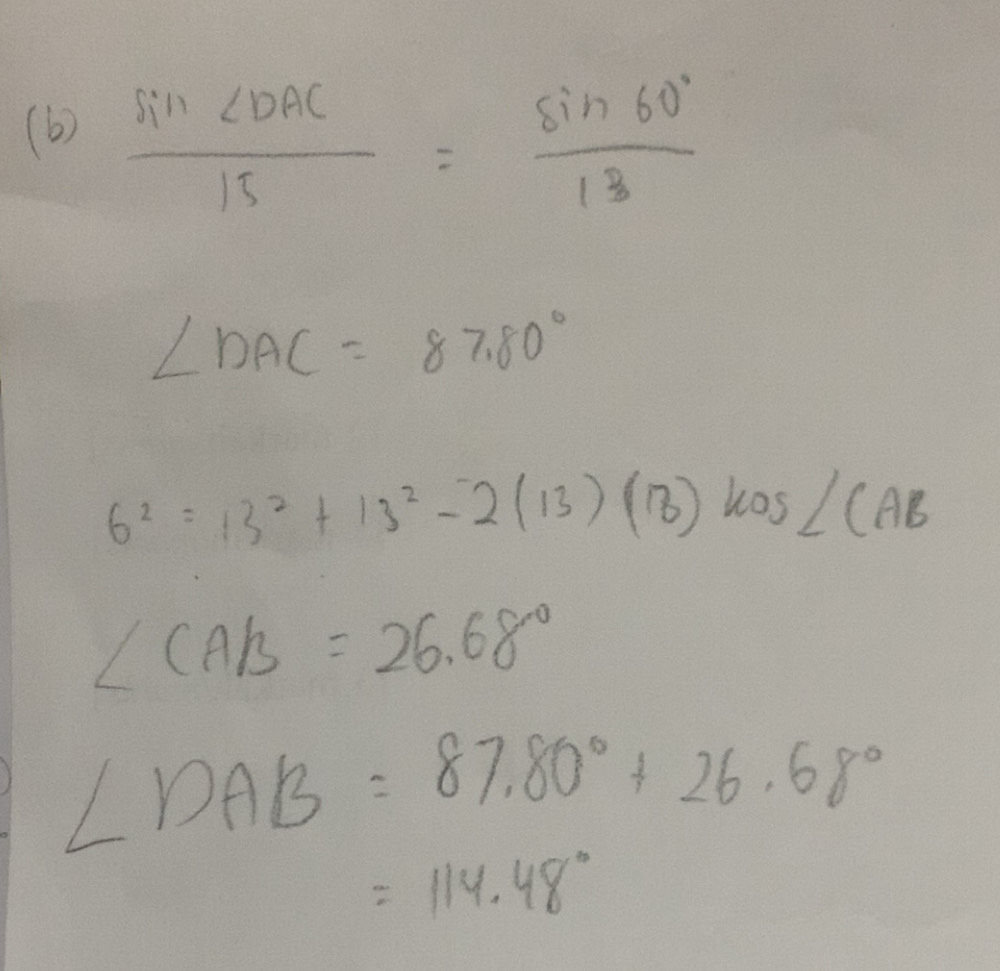 (b) sin ∠DAC / 15 = sin 60° / 13
∠DAC = 87.80°
6² = 13² + 13² - 2(13)(13) kos ∠CAB
∠CAB = 26.68°
∠DAB = 87.80° + 26.68°
= 114.48°